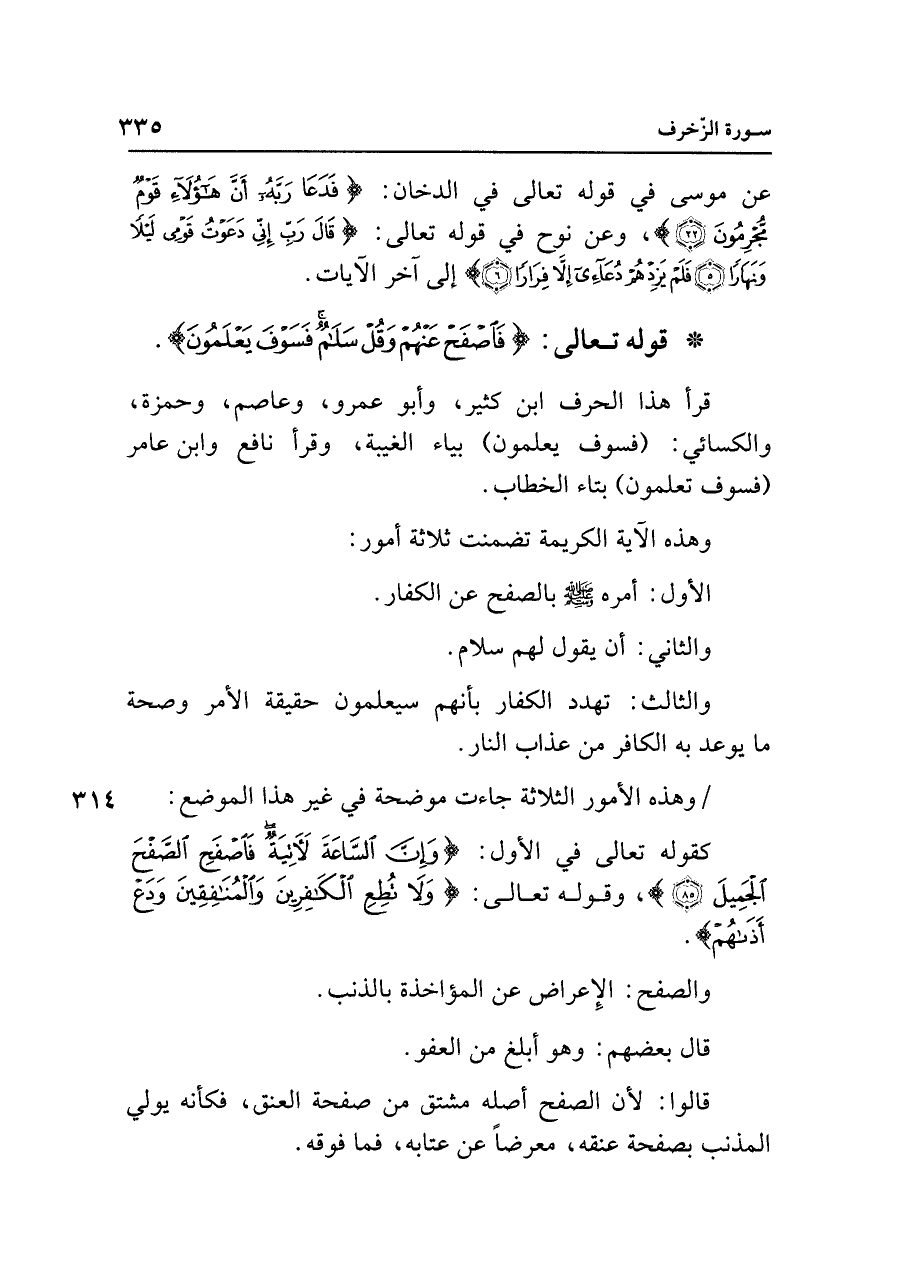 سورة الزّخرف ٣٣٥
عن موسى في قوله تعالى في الدخان: ﴿ فَدَعَا رَبَّهُۥٓ أَنَّ هَٰٓؤُلَآءِ قَوْمٌ
مُّجْرِمُونَ ۝٢٢ ﴾، وعن نوح في قوله تعالى: ﴿ قَالَ رَبِّ إِنِّي دَعَوْتُ قَوْمِي لَيْلًا
وَنَهَارًا ۝٥ فَلَمْ يَزِدْهُمْ دُعَآءِيٓ إِلَّا فِرَارًا ۝٦﴾ إلى آخر الآيات.
* قوله تـعالى: ﴿ فَٱصْفَحْ عَنْهُمْ وَقُلْ سَلَٰمٌ ۚ فَسَوْفَ يَعْلَمُونَ﴾.
قرأ هذا الحرف ابن كثير، وأبو عمرو، وعاصم، وحمزة،
والكسائي: (فسوف يعلمون) بياء الغيبة، وقرأ نافع وابن عامر
(فسوف تعلمون) بتاء الخطاب.
وهذه الآية الكريمة تضمنت ثلاثة أمور:
الأول: أمره ﷺ بالصفح عن الكفار.
والثاني: أن يقول لهم سلام.
والثالث: تهدد الكفار بأنهم سيعلمون حقيقة الأمر وصحة
ما يوعد به الكافر من عذاب النار.
/ وهذه الأمور الثلاثة جاءت موضحة في غير هذا الموضع: ٣١٤
كقوله تعالى في الأول: ﴿ وَإِنَّ ٱلسَّاعَةَ لَأٓتِيَةٌ ۖ فَٱصْفَحِ ٱلصَّفْحَ
ٱلْجَمِيلَ ۝٨٥ ﴾، وقـولـه تعـالـى: ﴿ وَلَا تُطِعِ ٱلْكَٰفِرِينَ وَٱلْمُنَٰفِقِينَ وَدَعْ
أَذَىٰهُمْ﴾.
والصفح: الإعراض عن المؤاخذة بالذنب.
قال بعضهم: وهو أبلغ من العفو.
قالوا: لأن الصفح أصله مشتق من صفحة العنق، فكأنه يولي
المذنب بصفحة عنقه، معرضاً عن عتابه، فما فوقه.